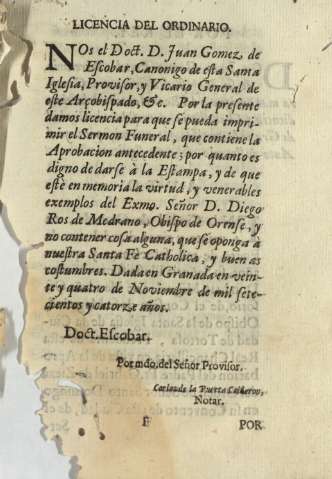 LICENCIA DEL ORDINARIO.
NOs el Doct. D. Juan Gomez de
Escobar, Canonigo de esta Santa
Iglesia, Provisor, y Vicario General de
este Arçobispado, &c. Por la presente
damos licencia para que se pueda impri-
mir el Sermon Funeral, que contiene la
Aprobacion antecedente; por quanto es
digno de darse à la Estampa, y de que
estè en memoria la virtud, y venerables
exemplos del Exmo. Señor D. Diego
Ros de Medrano, Obispo de Orense, y
no contener cosa alguna, que se oponga à
nuestra Santa Fè Catholica, y buenas
costumbres. Dada en Granada en vein-
te y quatro de Noviembre de mil sete-
cientos y catorze años.
Doct. Escobar.
Por mdo. del Señor Provisor.
Carlos de la Puerta Calderon,
Notar.
POR